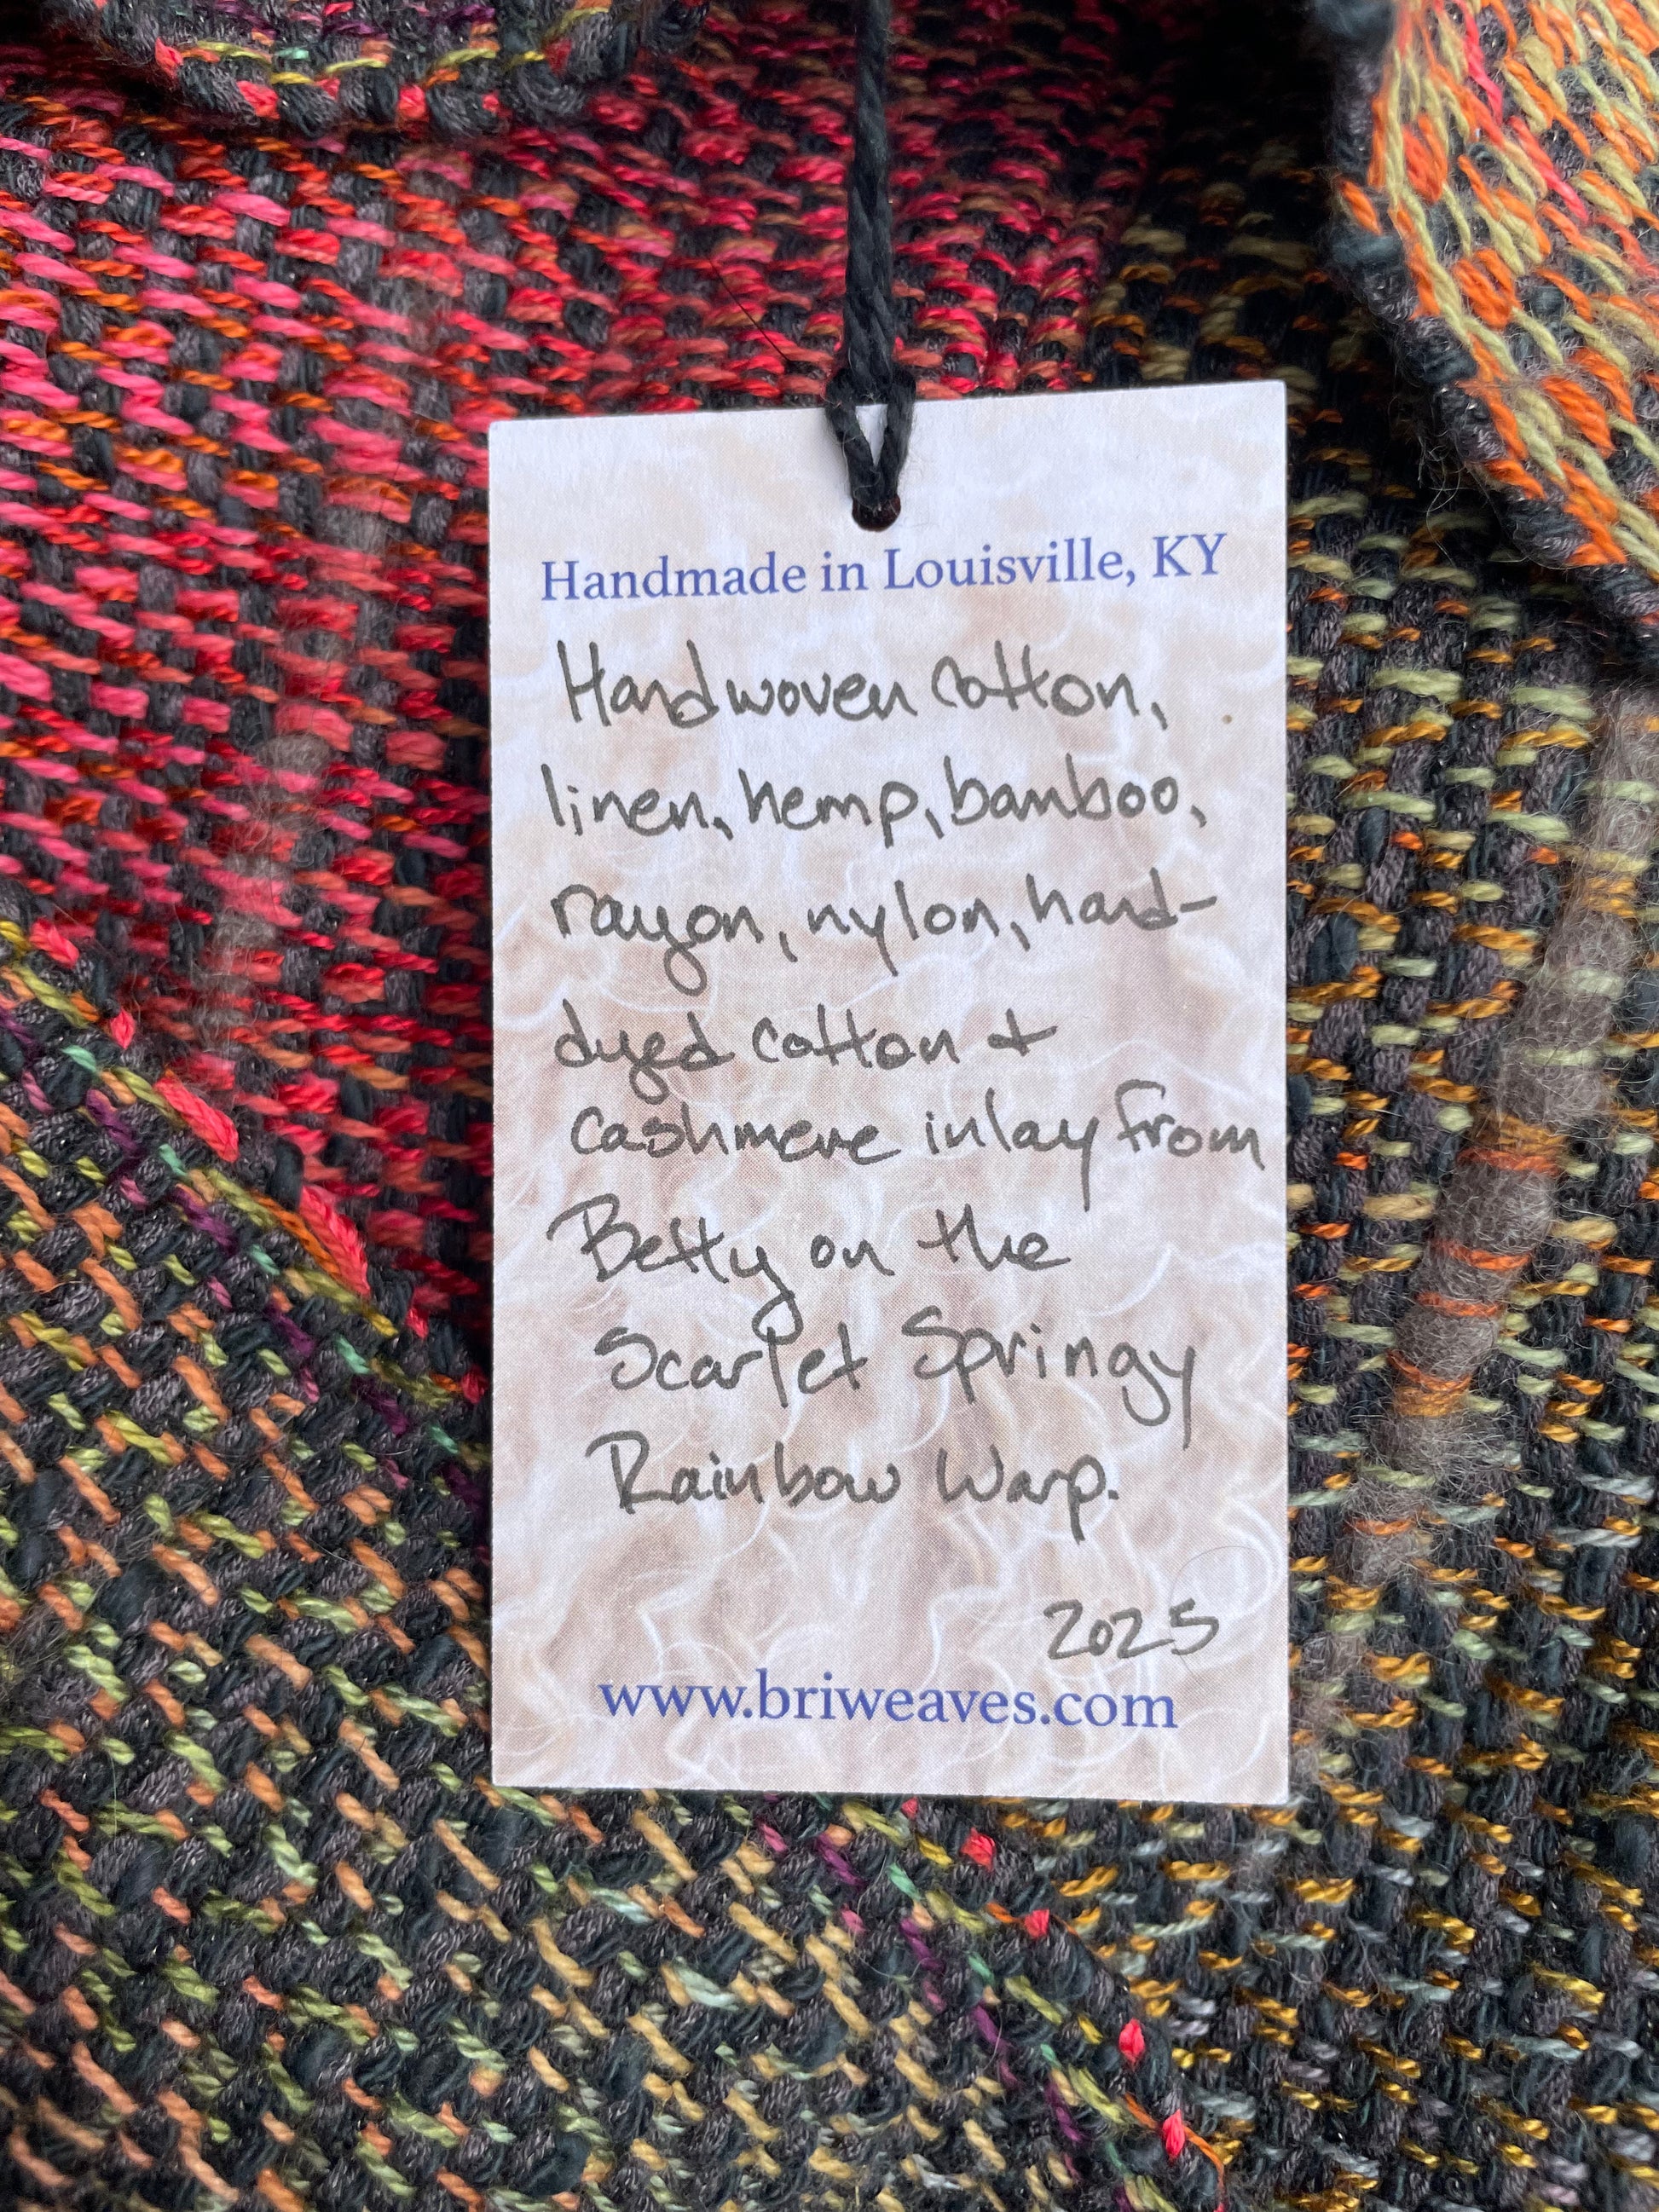 Handmade in Louisville, KY
Handwoven cotton,
linen, hemp, bamboo,
rayon, nylon, hand-
dyed cotton +
cashmere inlay from
Betty on the
Scarlet Springy
Rainbow Warp.
2025
www.briweaves.com